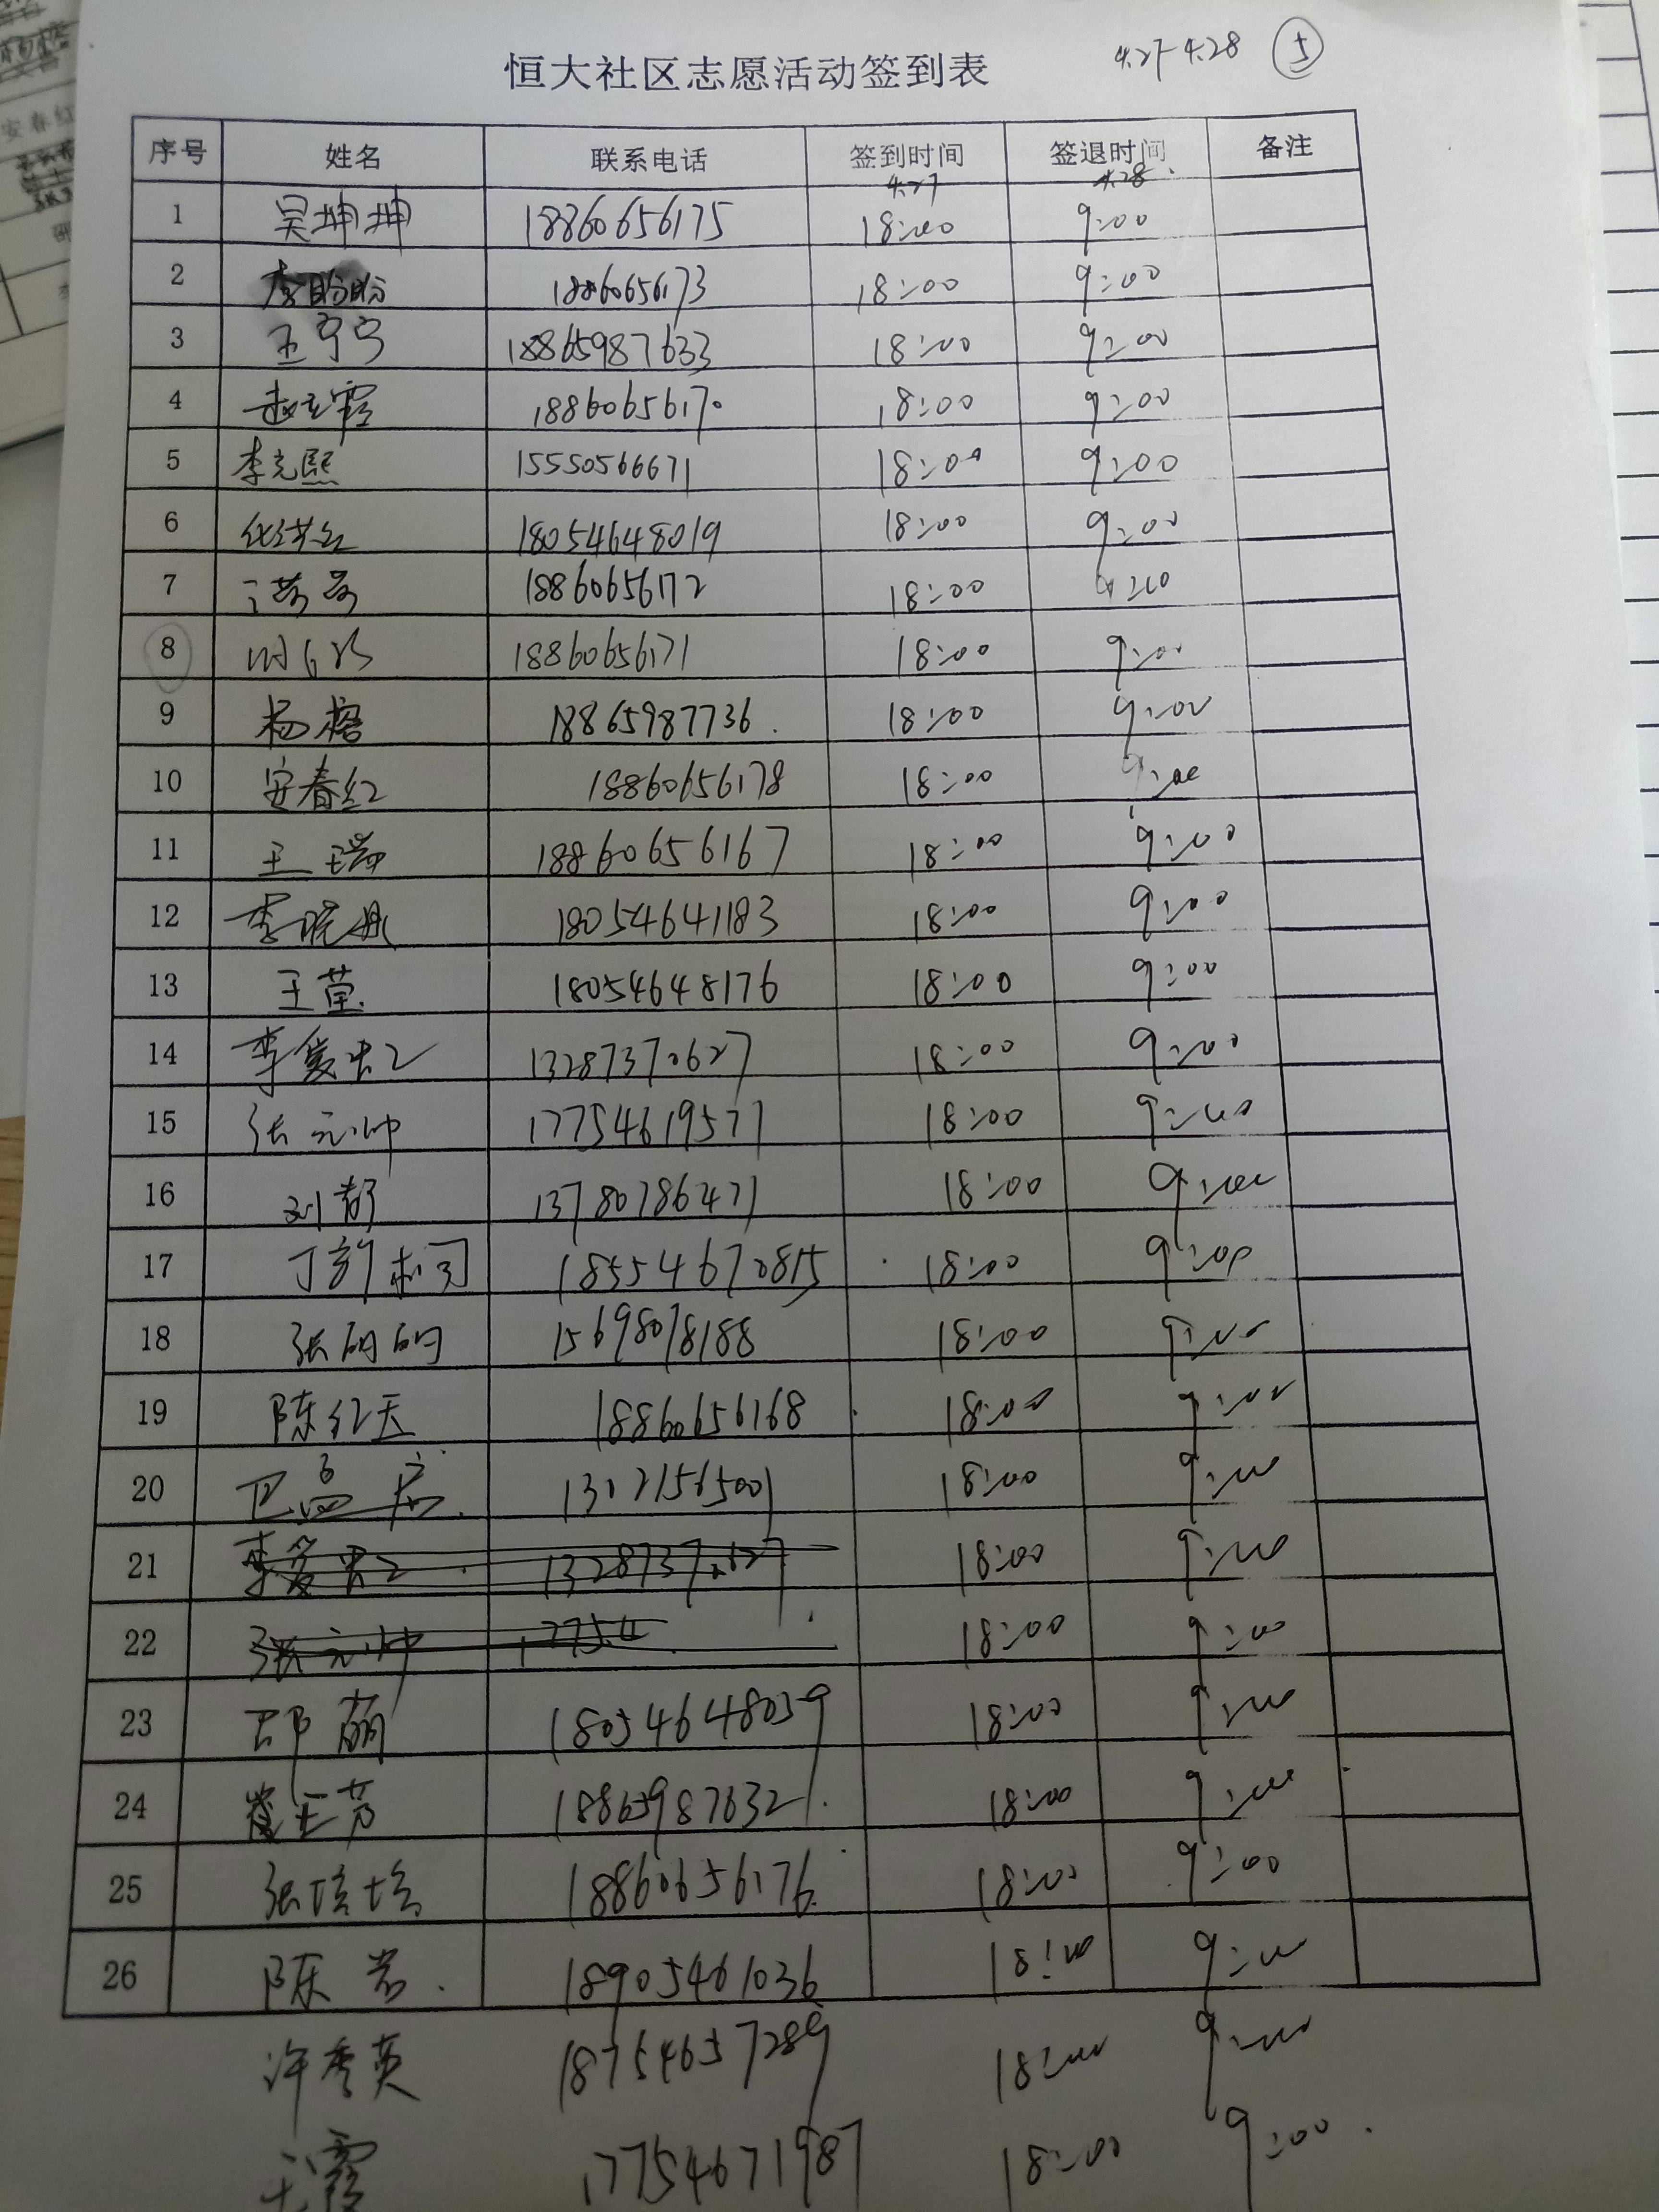 4.27-4.28 5
恒大社区志愿活动签到表
序号 姓名 联系电话 签到时间 签退时间 备注
4.27 4.28
1 吴坤坤 18860656175 18:00 9:00
2 李盼盼 18860656173 18:00 9:00
3 王宁宁 18865987633 18:00 9:00
4 赵玉霞 18860656170 18:00 9:00
5 李克熙 15550566671 18:00 9:00
6 18054648019 18:00 9:00
7 18860656172 18:00 9:00
8 18860656171 18:00 9:00
9 杨榕 18865987736 18:00 9:00
10 安春红 18860656178 18:00 9:00
11 王瑞 18860656167 18:00 9:00
12 李晓彤 18054641183 18:00 9:00
13 王莹 18054648176 18:00 9:00
14 李爱忠 13287370627 18:00 9:00
15 张元帅 17754619571 18:00 9:00
16 刘静 13780786471 18:00 9:00
17 丁新桐 18554670815 18:00 9:00
18 张明明 15698078188 18:00 9:00
19 陈红玉 18860656168 18:00 9:00
20 13021565001 18:00 9:00
21 13287370627 18:00 9:00
22 张元帅 17754 18:00 9:00
23 邵萌 18054648059 18:00 9:00
24 崔玉芳 18865987632 18:00 9:00
25 张培培 18860656176 18:00 9:00
26 陈岩 18905461036 18:00 9:00
许秀英 18754657289 18:00 9:00
王霞 17754671987 18:00 9:00
安春红